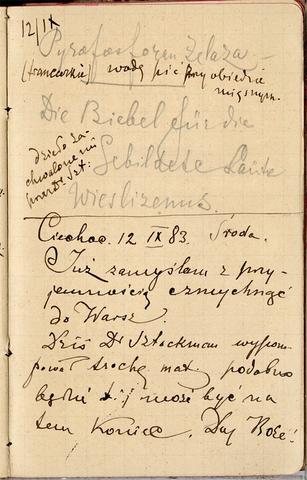 12/IX
Pyrofosforan Żelaza —
(francuski) wodę pić przy obiedzie
mięsnym.
Die Biebel für die
Gebildete Leute
Wieslizenus.
dzieło za-
chwalone mi
przez Dr Szt:
Ciechoc. 12 IX 83. Środa.
Już zamyślam z przy-
jemnością czmychnąć
do Warsz.
Dziś Dr Sztockman wypom-
pował trochę mat. podobno
może być na
tem koniec. Daj Boże!